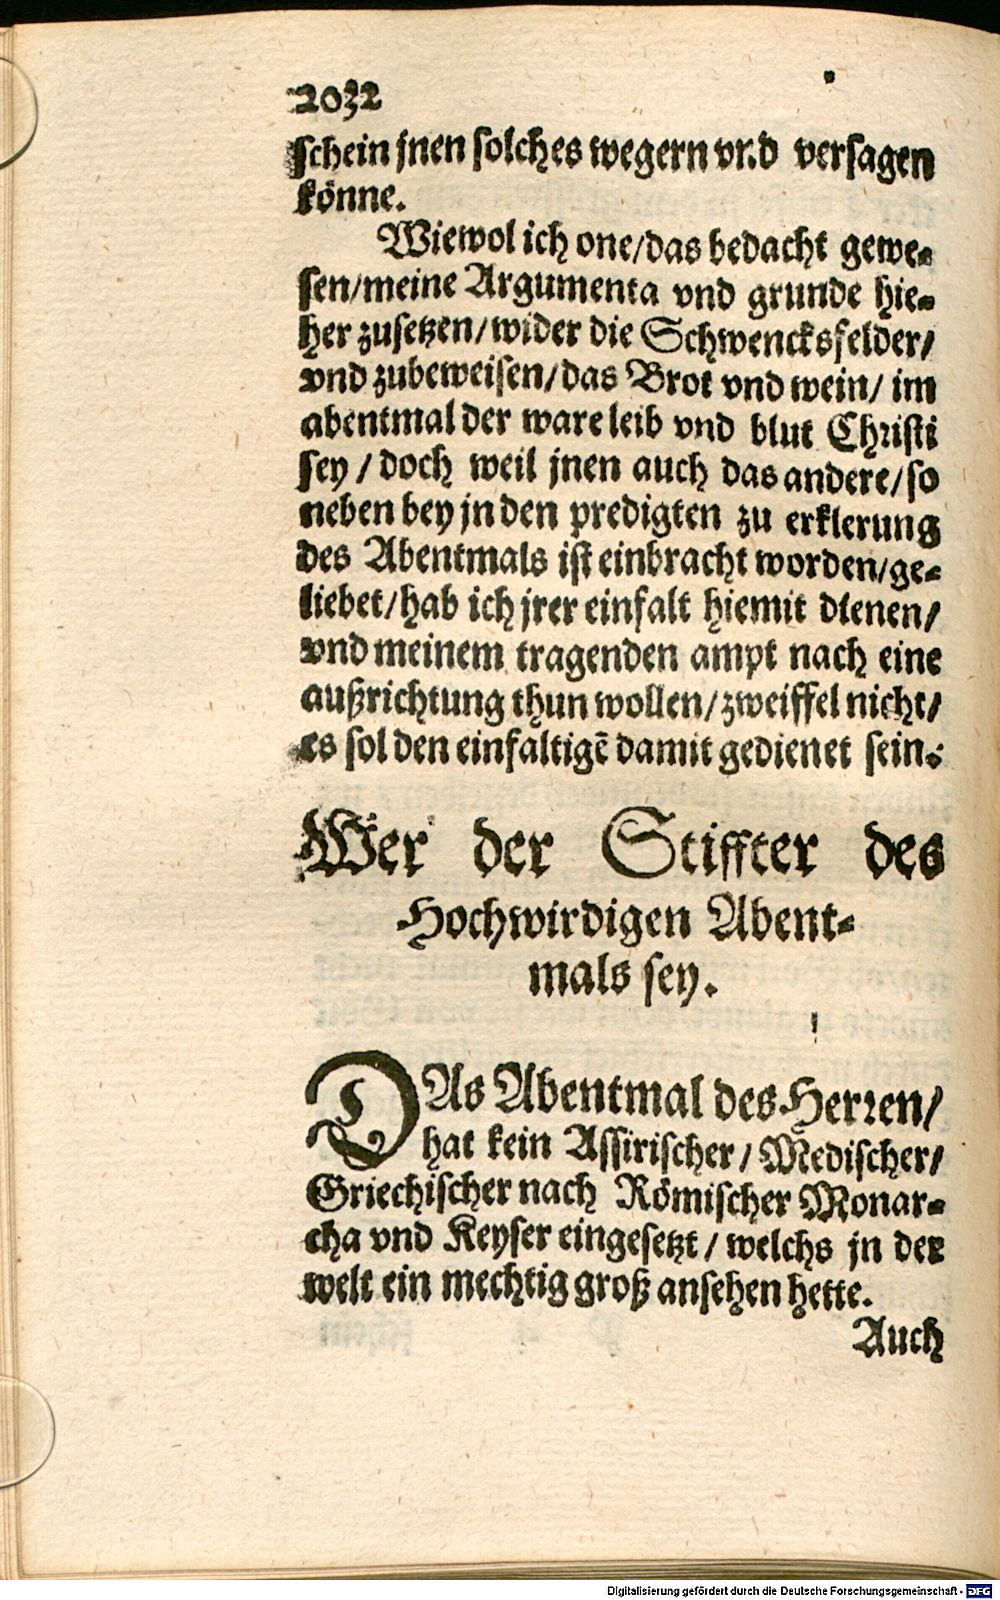 2032
schein jnen solches wegern vnd versagen
könne.
Wiewol ich one/das bedacht gewe-
sen/meine Argumenta vnd grunde hie-
her zusetzen/wider die Schwencksfelder/
vnd zubeweisen/das Brot vnd wein/ im
abentmal der ware leib vnd blut Christi
sey / doch weil jnen auch das andere/so
neben bey jn den predigten zu erklerung
des Abentmals ist einbracht worden/ge-
liebet/hab ich jrer einfalt hiemit dienen/
vnd meinem tragenden ampt nach eine
außrichtung thun wollen/zweiffel nicht/
es sol den einfaltigē damit gedienet sein.
Wer der Stiffter des
Hochwirdigen Abent-
mals sey.
DAs Abentmal des Herren/
hat kein Assirischer/ Medischer/
Griechischer nach Römischer Monar-
cha vnd Keyser eingesetzt / welchs jn der
welt ein mechtig groß ansehen hette.
Auch
Digitalisierung gefördert durch die Deutsche Forschungsgemeinschaft - DFG